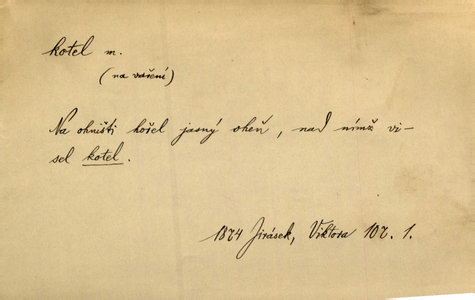 kotel m.
(na vaření)
Na ohništi hořel jasný oheň, nad nímž vi-
sel kotel.
1874 Jirásek, Viktora 107. 1.